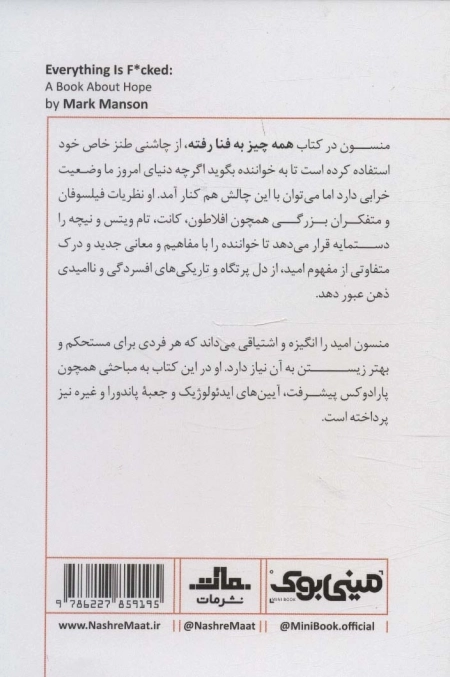 Everything Is F*cked:
A Book About Hope
by Mark Manson
منسون در کتاب همه چیز به فنا رفته، از چاشنی طنز خاص خود
استفاده کرده است تا به خواننده بگوید اگرچه دنیای امروز ما وضعیت
خرابی دارد اما می‌توان با این چالش هم کنار آمد. او نظریات فیلسوفان
و متفکران بزرگی همچون افلاطون، کانت، تام ویتس و نیچه را
دستمایه قرار می‌دهد تا خواننده را با مفاهیم و معانی جدید و درک
متفاوتی از مفهوم امید، از دل پرتگاه و تاریکی‌های افسردگی و ناامیدی
ذهن عبور دهد.
منسون امید را انگیزه و اشتیاقی می‌داند که هر فردی برای مستحکم و
بهتر زیستن به آن نیاز دارد. او در این کتاب به مباحثی همچون
پارادوکس پیشرفت، آیین‌های ایدئولوژیک و جعبهٔ پاندورا و غیره نیز
پرداخته است.
مینی بوک
MINI BOOK
مات
نشر مات
9 786227 859195
www.NashreMaat.ir || @NashreMaat || @MiniBook.official